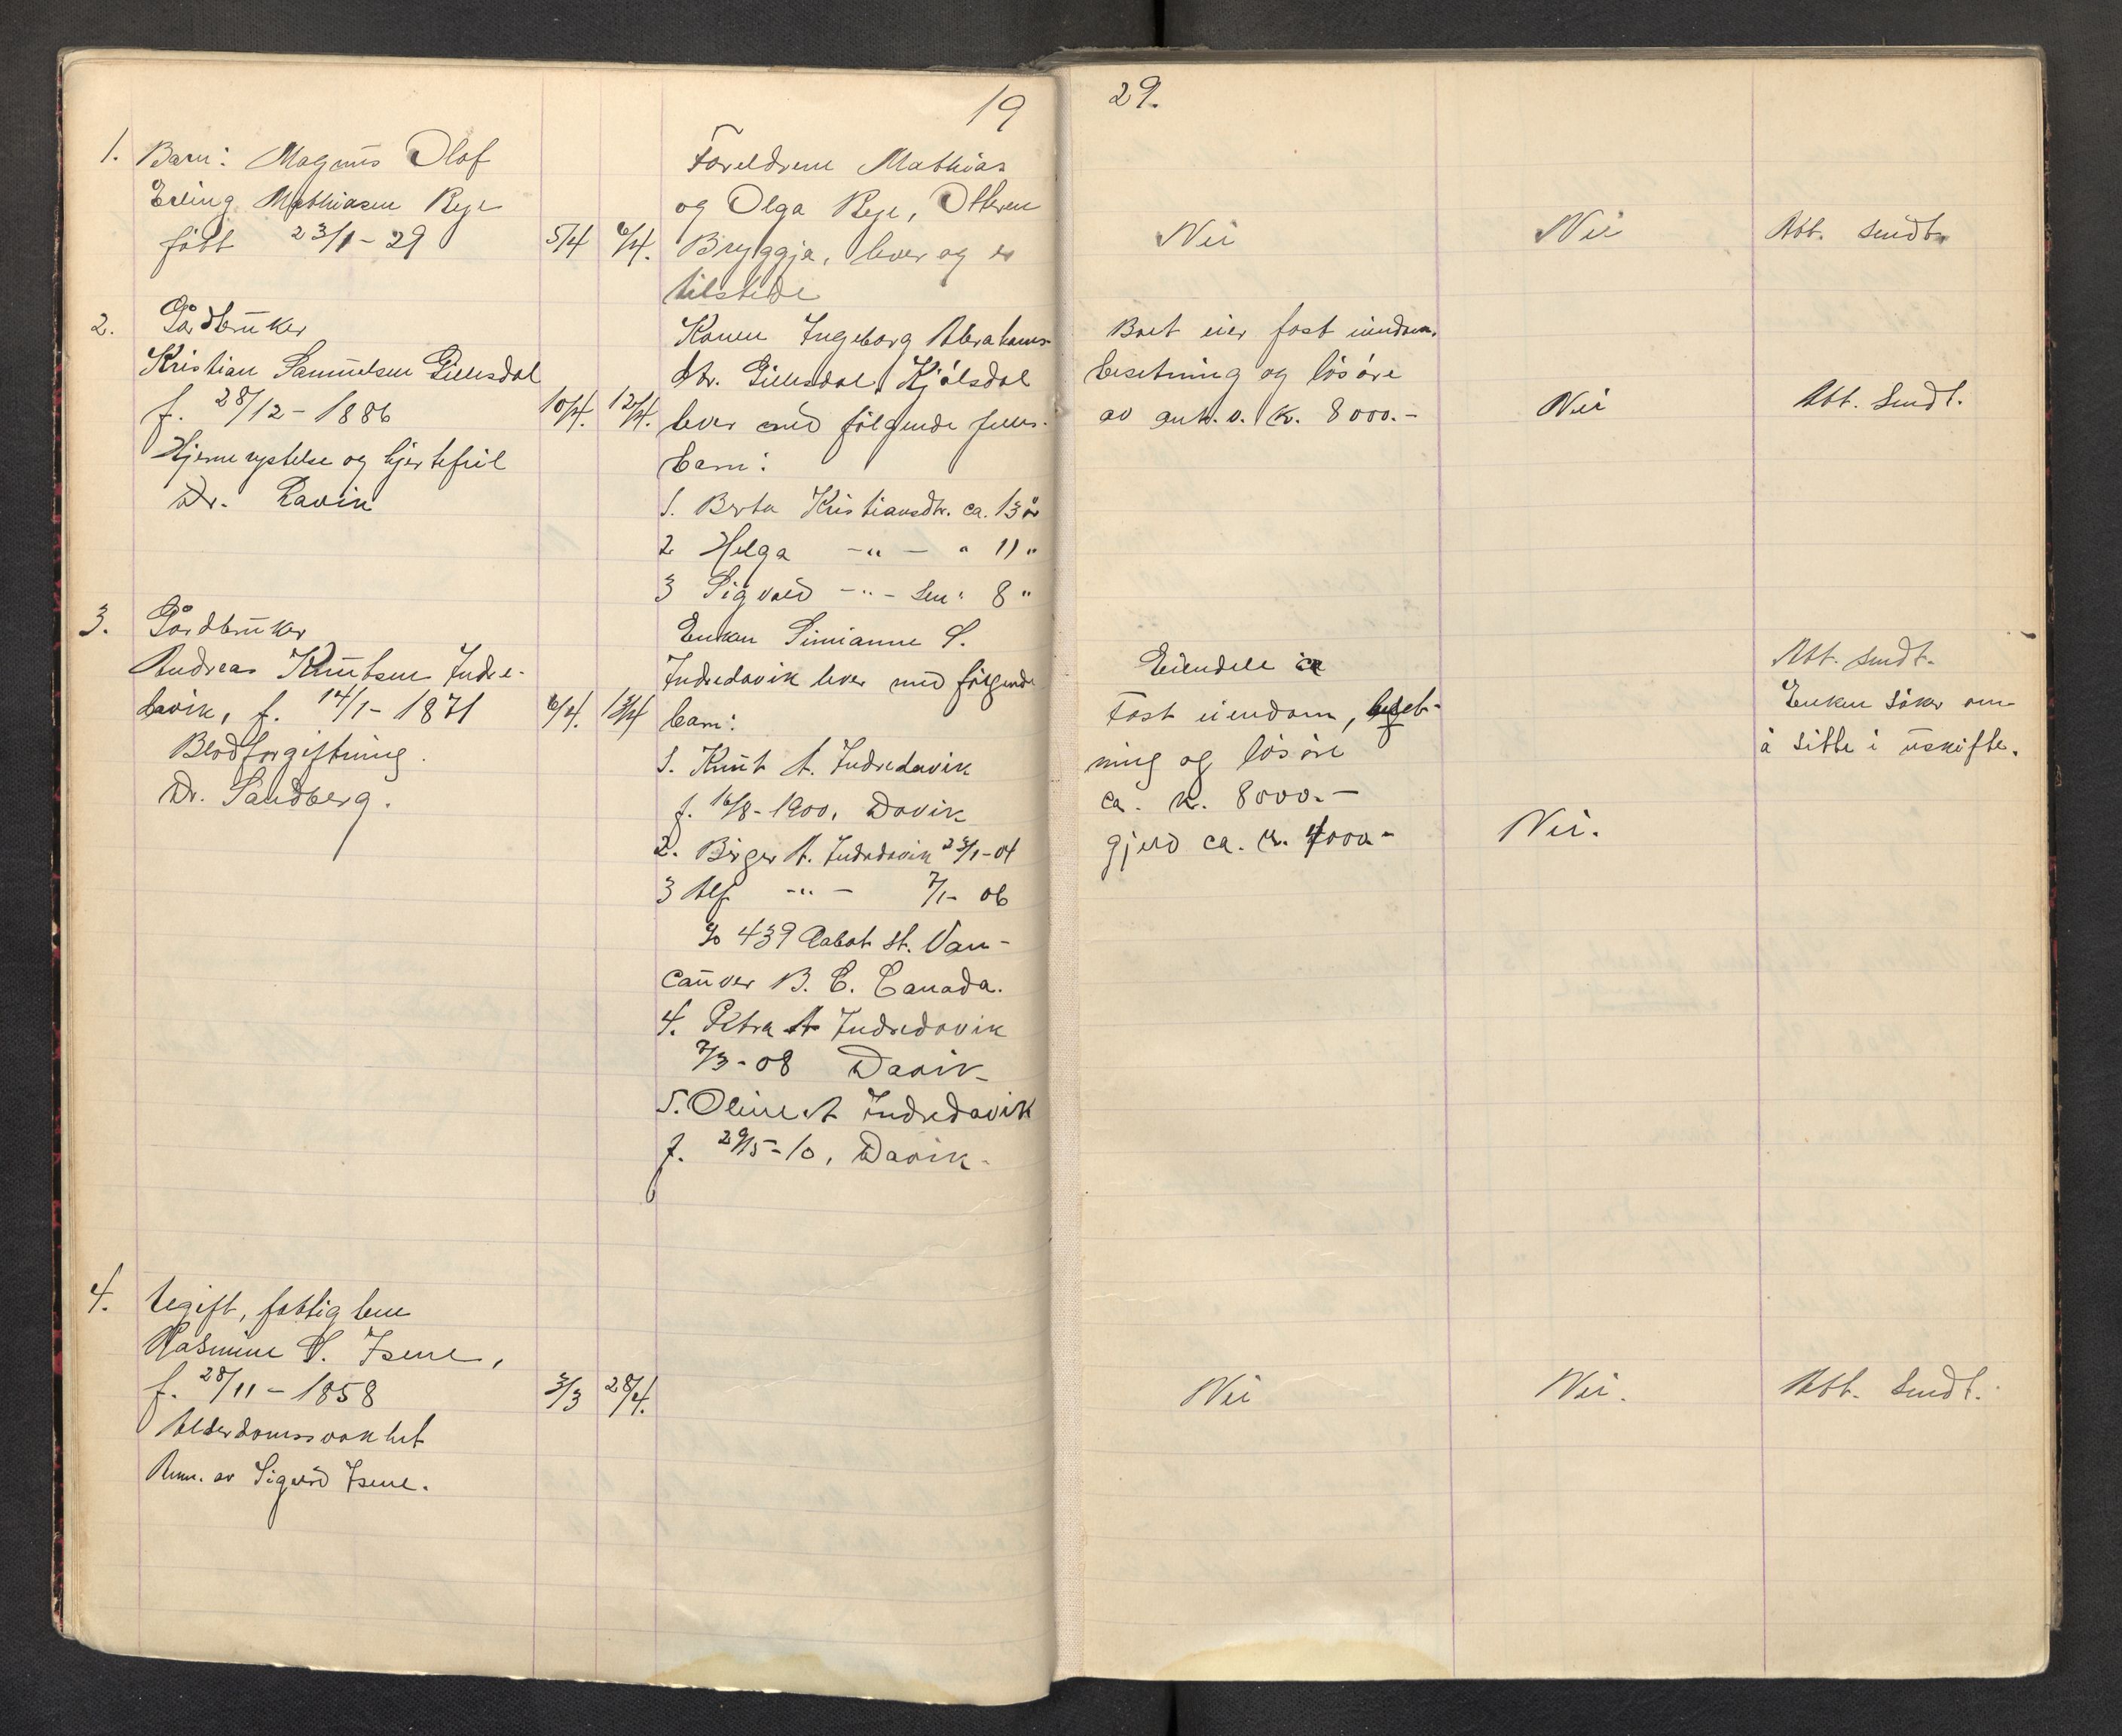 19
29.
1. Barn: Magnus Olof
Erling Mathiasen Rege
født 23/1 - 29
5/4 6/4.
Foreldrene Mathias
og Olga Rege, Otteren
Bryggja, lever og er
tilstede
Nei
Nei
Att. sendt.
2. Gårdbruker
Kristian Samuelsen Gillesdal
f. 28/12 - 1886
10/4. 12/4.
Hjernerystelse og hjertefeil
Dr. Ravik
Konen Ingeborg Abrahams-
dtr. Gillesdal, Kjölsdal
lever med følgende felles-
barn:
1. Berta Kristiansdtr. ca. 13 år
2 Helga -"- " 11 "
3 Sigvald -"- sen " 8 "
Boet eier fast eiendom,
besetning og løsøre
av ant. v. k. 8000.-
Nei
Att. Sendt.
3. Gårdbruker
Andreas Knutsen Indre-
davik, f. 14/1 - 1871
6/4. 13/4
Blodforgiftning.
Dr. Sandberg.
Enken Simianne S.
Indredavik lever med følgende
barn:
1. Knut A. Indredavik
f. 16/8 - 1900, Davik
2. Birger A. Indredavik 23/1 - 04
3 Alf -"- 7/1 - 06
% 439 Cabot st. Van-
couver B. C. Canada.
4. Petra A Indredavik
7/3 - 08 Davik
5. Oline A Indredavik
f. 29/5 - 10, Davik.
Eiendele ca
Fast eiendom, beset-
ning og løsøre
ca. k. 8000.-
gjeld ca. k. 4000.-
Nei.
Att. sendt.
Enken søker om
å sitte i uskifte.
4. Ugift, fattiglem
Rasmine S. Isene,
f. 28/11 - 1858
3/3 28/4.
Alderdomssvakhet
Anm. av Sigurd Isene.
Nei
Nei.
Att. Sendt.